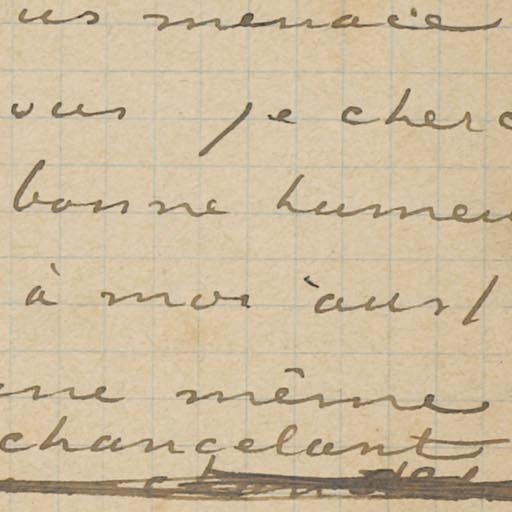 us menace
ous je cherc
bonne humeu
à moi aussi
ne même
chancelant